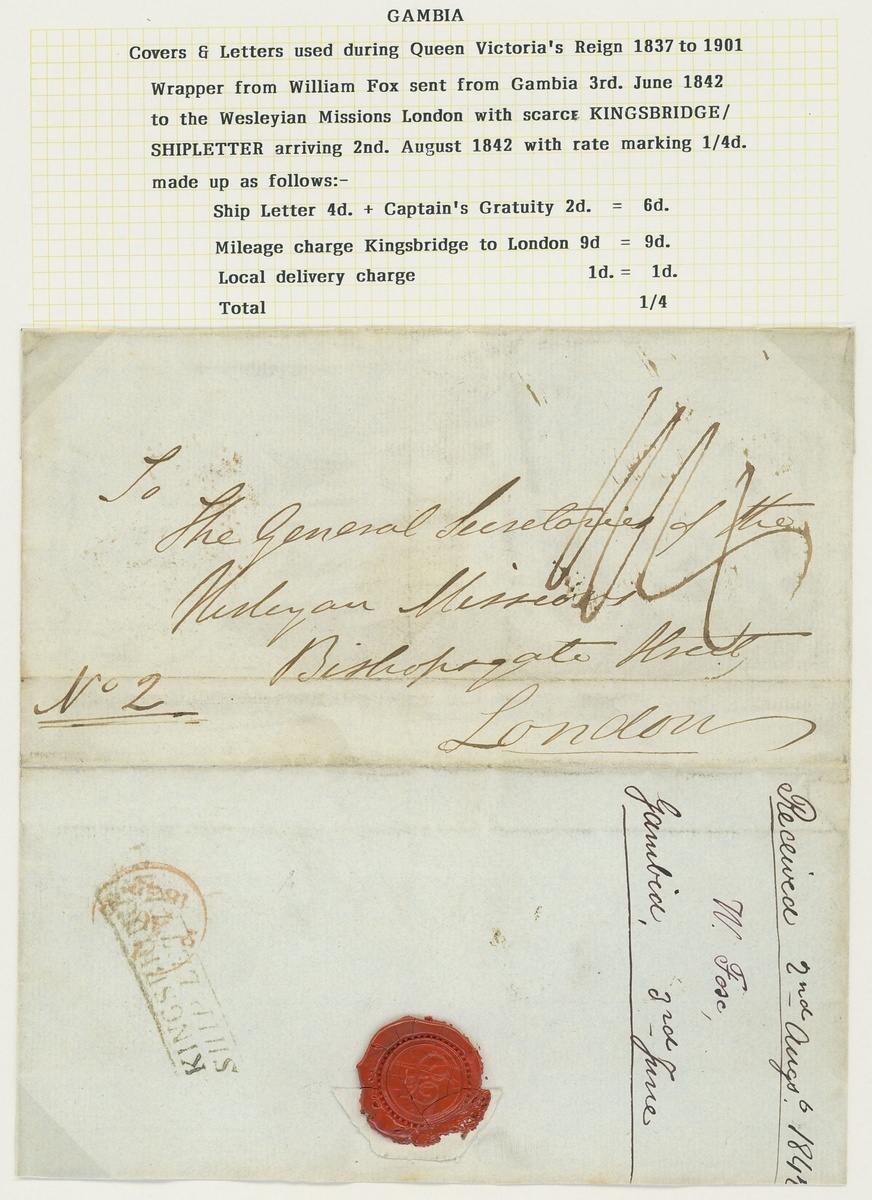 GAMBIA
Covers & Letters used during Queen Victoria's Reign 1837 to 1901
Wrapper from William Fox sent from Gambia 3rd. June 1842
to the Wesleyian Missions London with scarce KINGSBRIDGE/
SHIPLETTER arriving 2nd. August 1842 with rate marking 1/4d.
made up as follows:-
Ship Letter 4d. + Captain's Gratuity 2d. = 6d.
Mileage charge Kingsbridge to London 9d = 9d.
Local delivery charge 1d. = 1d.
Total 1/4
To
The General Secretaries of the
Wesleyan Missions
Bishopsgate Street
London
No 2
Received 2nd Augst. 1842
W. Fox,
Gambia, 3rd June
KINGSBRIDGE
SHIP LETTER